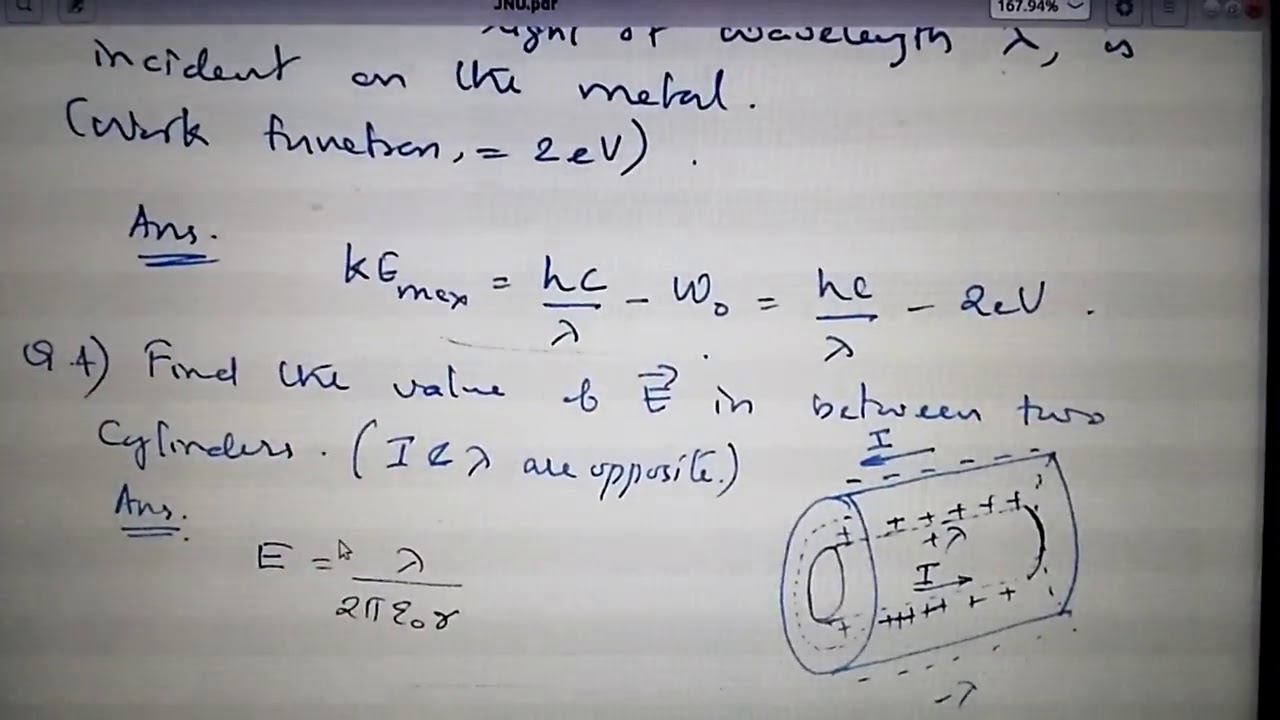 JNU.pdf
167.94%
light of wavelength λ, is
incident on the metal.
(Work function, = 2eV).
Ans.
KE_max = hc/λ - W₀ = hc/λ - 2eV.
Q.4) Find the value of E⃗ in between two
Cylinders. (I & λ are opposite.)
Ans.
E = λ/2πε₀r
I
+λ
I
-λ